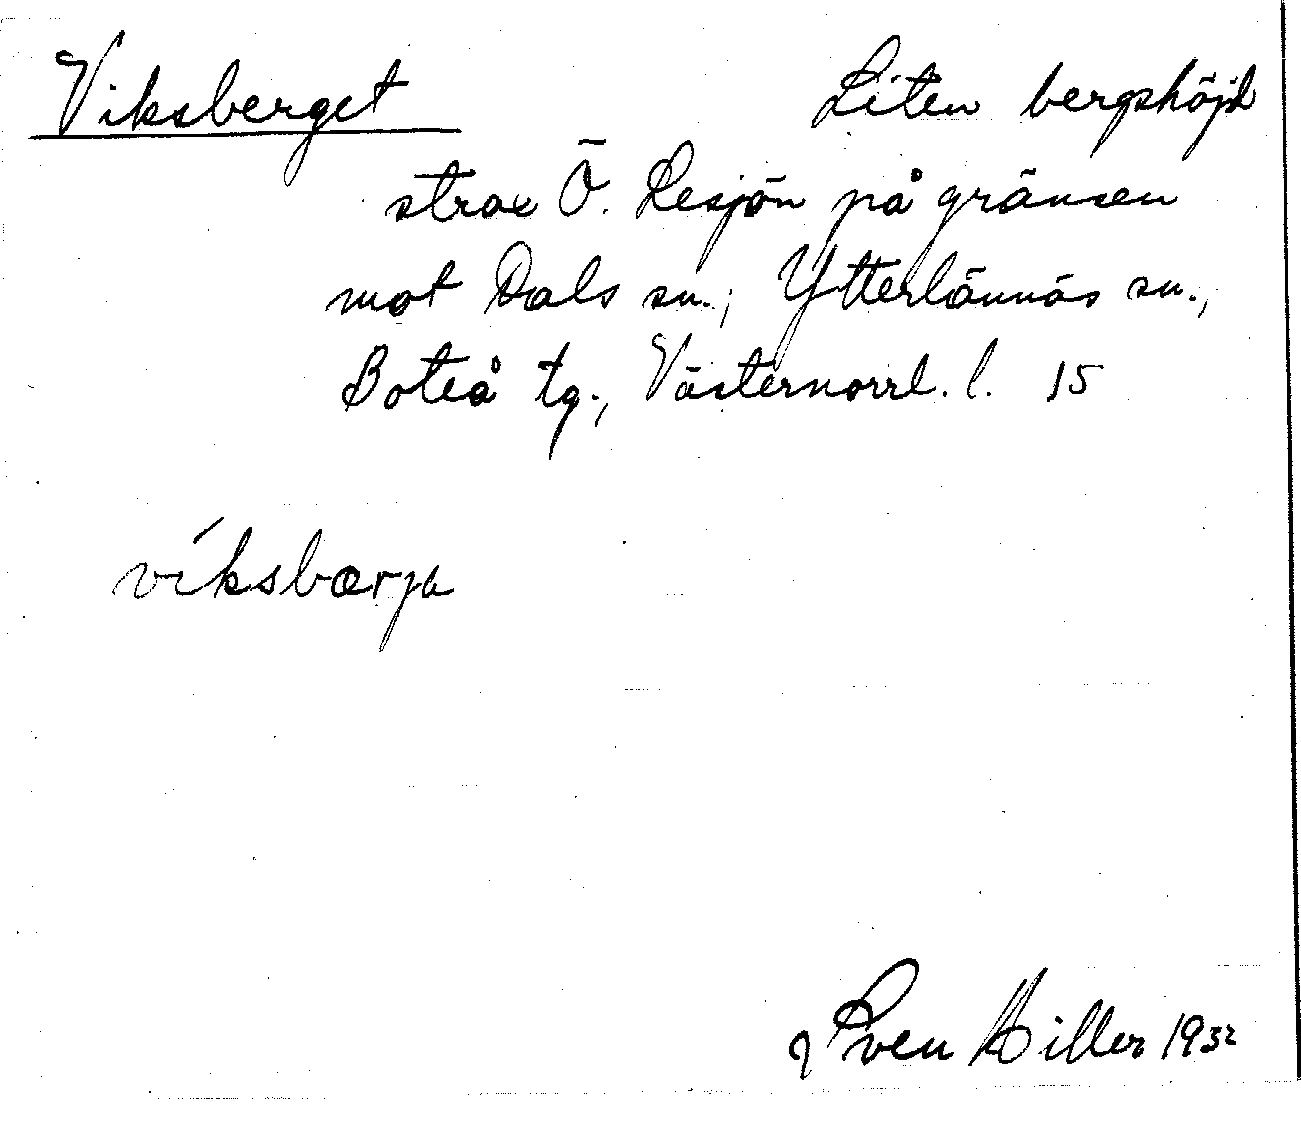 Viksberget Liten bergshöjd
strax Ö. Lesjön på gränsen
mot Dals sn., Ytterlännäs sn.,
Boteå tg., Västernorrl. l. 15
víksbærja
Sven Hiller 1932